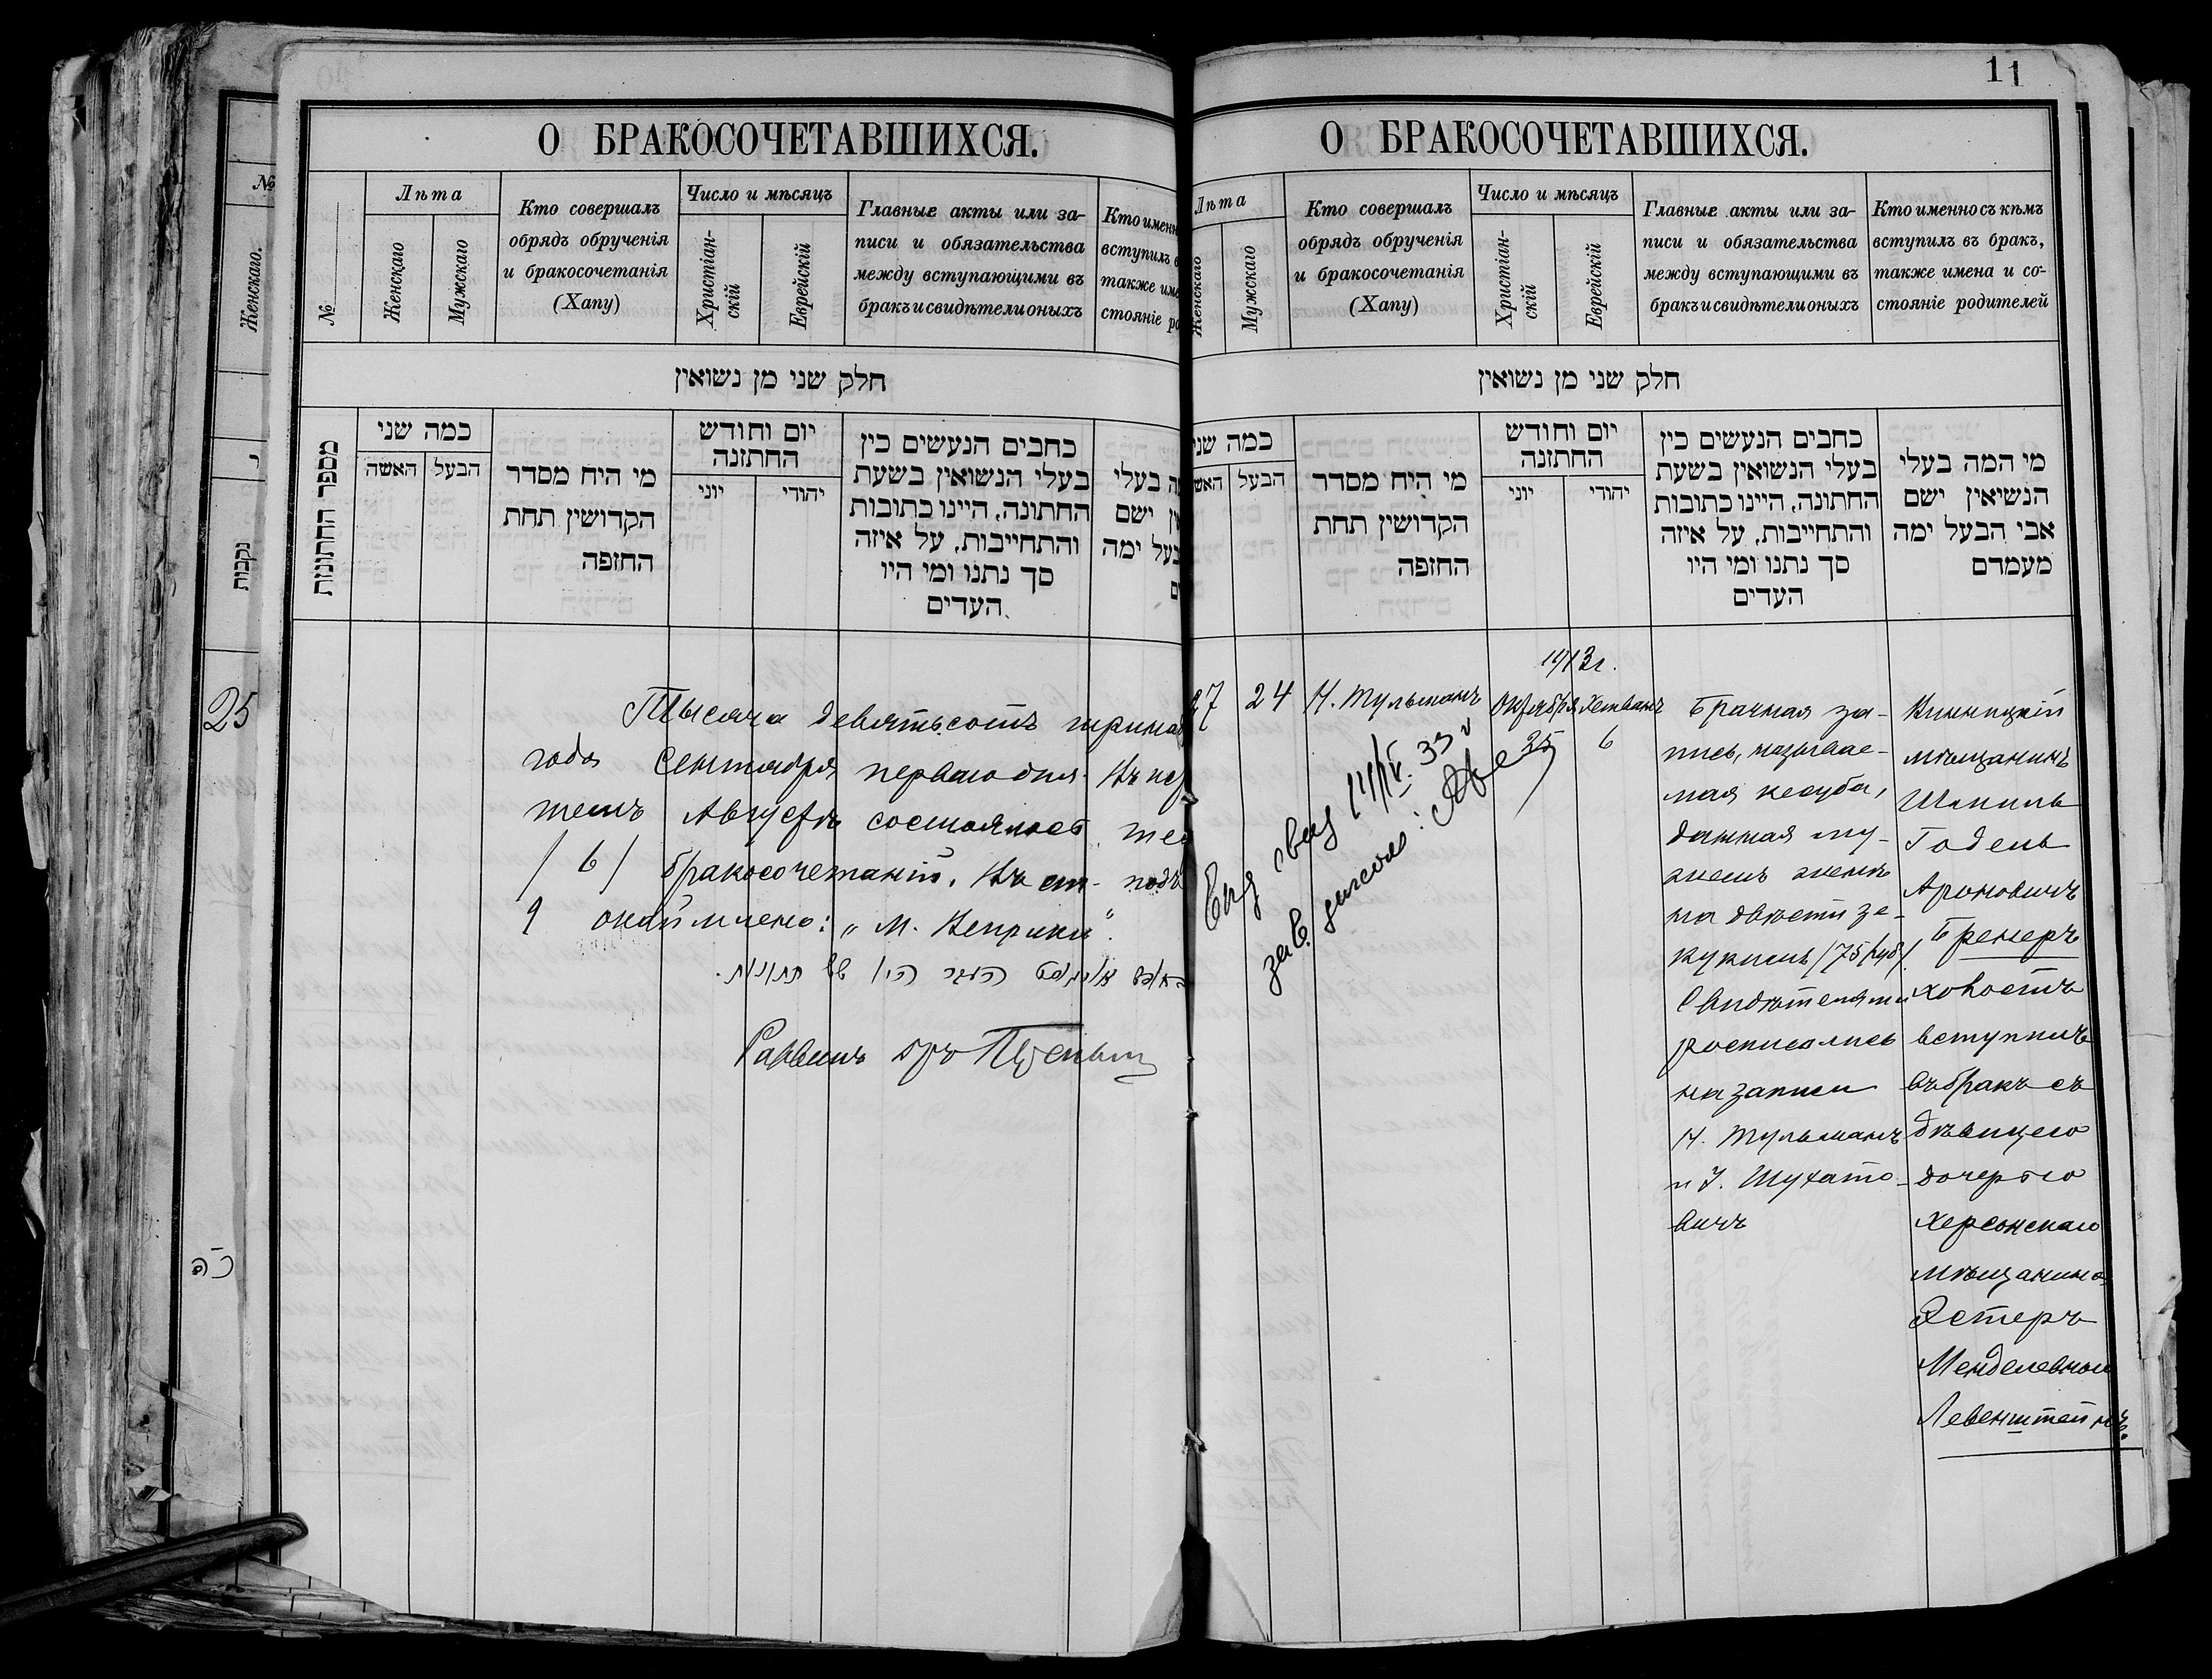 №
Женскаго.
נקבות
25
כה
О БРАКОСОЧЕТАВШИХСЯ.
№
Лѣта
Женскаго
Мужскаго
Кто совершалъ
обрядъ обрученія
и бракосочетанія
(Хапу)
Число и мѣсяцъ
Христіан-
скій
Еврейскій
Главные акты или за-
писи и обязательства
между вступающими въ
бракъ и свидѣтели оныхъ
Кто именн
вступилъ в
также име
стояніе ро
חלק שני מן נשואין
מספר החתונות
כמה שני
האשה
הבעל
מי היח מסדר
הקדושין תחת
החזפה
יום וחודש
החתזנה
יוני
יהודי
כחבים הנעשים כין
בעלי הנשואין בשעת
החתונה, היינו כתובות
והתחייבות, על איזה
סך נתנו ומי היו
העדים
ה בעלי
ין ישם
בעל ימה
Тысяча девятьсотъ трина
года Сентября перваго дня. Въ
темъ Августѣ состоялось
/ 6 / бракосочетаній. Въ ст-
9 окаймлено: „М. Веприки".
שש חתונות.
Раввинъ
11
О БРАКОСОЧЕТАВШИХСЯ.
Лѣта
Женскаго
Мужскаго
Кто совершалъ
обрядъ обрученія
и бракосочетанія
(Хапу)
Число и мѣсяцъ
Христіан-
скій
Еврейскій
Главные акты или за-
писи и обязательства
между вступающими въ
бракъ и свидѣтели оныхъ
Кто именно съ кѣмъ
вступилъ въ бракъ,
также имена и со-
стояніе родителей
חלק שני מן נשואין
כמה שני
האש
הבעל
מי היח מסדר
הקדושין תחת
החזפה
יום וחודש
החתזנה
יוני
יהודי
כחבים הנעשים כין
בעלי הנשואין בשעת
החתונה, היינו כתובות
והתחייבות, על איזה
סך נתנו ומי היו
העדים
מי המה בעלי
הנשיאין ישם
אבי הבעל ימה
מעמדם
1913г.
27
24
Н. Тульманъ
Октября
Хешванъ
25
6
Брачная за-
пись, называе-
мая кесуба,
данная му-
жемъ женѣ
на двѣсти зе-
кукимъ /75 руб/.
Свидѣтелями
росписались
на записи
Н. Тульманъ
и І. Шухато-
вичъ
Винницкій
мѣщанинъ
Шмиль
Годель
Ароновичъ
Бренеръ
холостъ
вступилъ
въ бракъ съ
дѣвицею
дочерью
херсонскаго
мѣщанина
Эстеръ
Менделевною
Левенштейнъ.